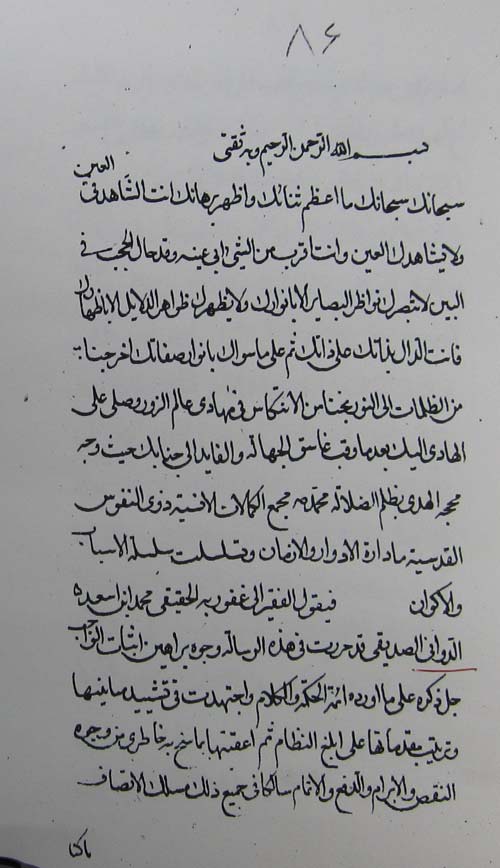 ٨۶
بسم الله الرحمن الرحيم وبه ثقتی
العين
سبحانك سبحانك ما اعظم شانك واظهر برهانك انت الشاهد فی
ولا يشاهدك العين وانت اقرب من الشی الی عينه وقد حال الحجب فی
البين لا تبصرك نواظر البصاير الا بانوارك ولا يظهرك ظواهر الدلايل الا
فانت الدال بذاتك علی ذاتك ثم علی ماسواك بانوار صفاتك اخرجنا
من الظلمات الی النور نجنا من الانتكاس فی مهادی عالم الزور وصلی علی
الهادی اليك بعد ما وقب غاسق الجهالة والقايد الی جنابك حيث وجه
محجه الهدی بظلم الضلالة محمد مجمع الكمالات الانسية ذوی النفوس
القدسية ما دارة الادوار والازمان وتسلسلت سلسلة الاسباب
والاكوان فيقول الفقير الی عفو ربه الحقيقی محمد ابن اسعد
الدوانی الصديقی قد حررت فی هذه الرسالة وجوه براهين اثبات الواجب
جل ذكره علی ما اورده ائمة الحكمة والكلام واجتهدت فی تشييد مبانيها
وترتيب مقدماتها علی ابلغ النظام ثم اعقبتها بما سنح به خاطری من وجوه
النقض والابرام والدفع والاتمام سالكا فی جميع ذلك مسلك الانصاف